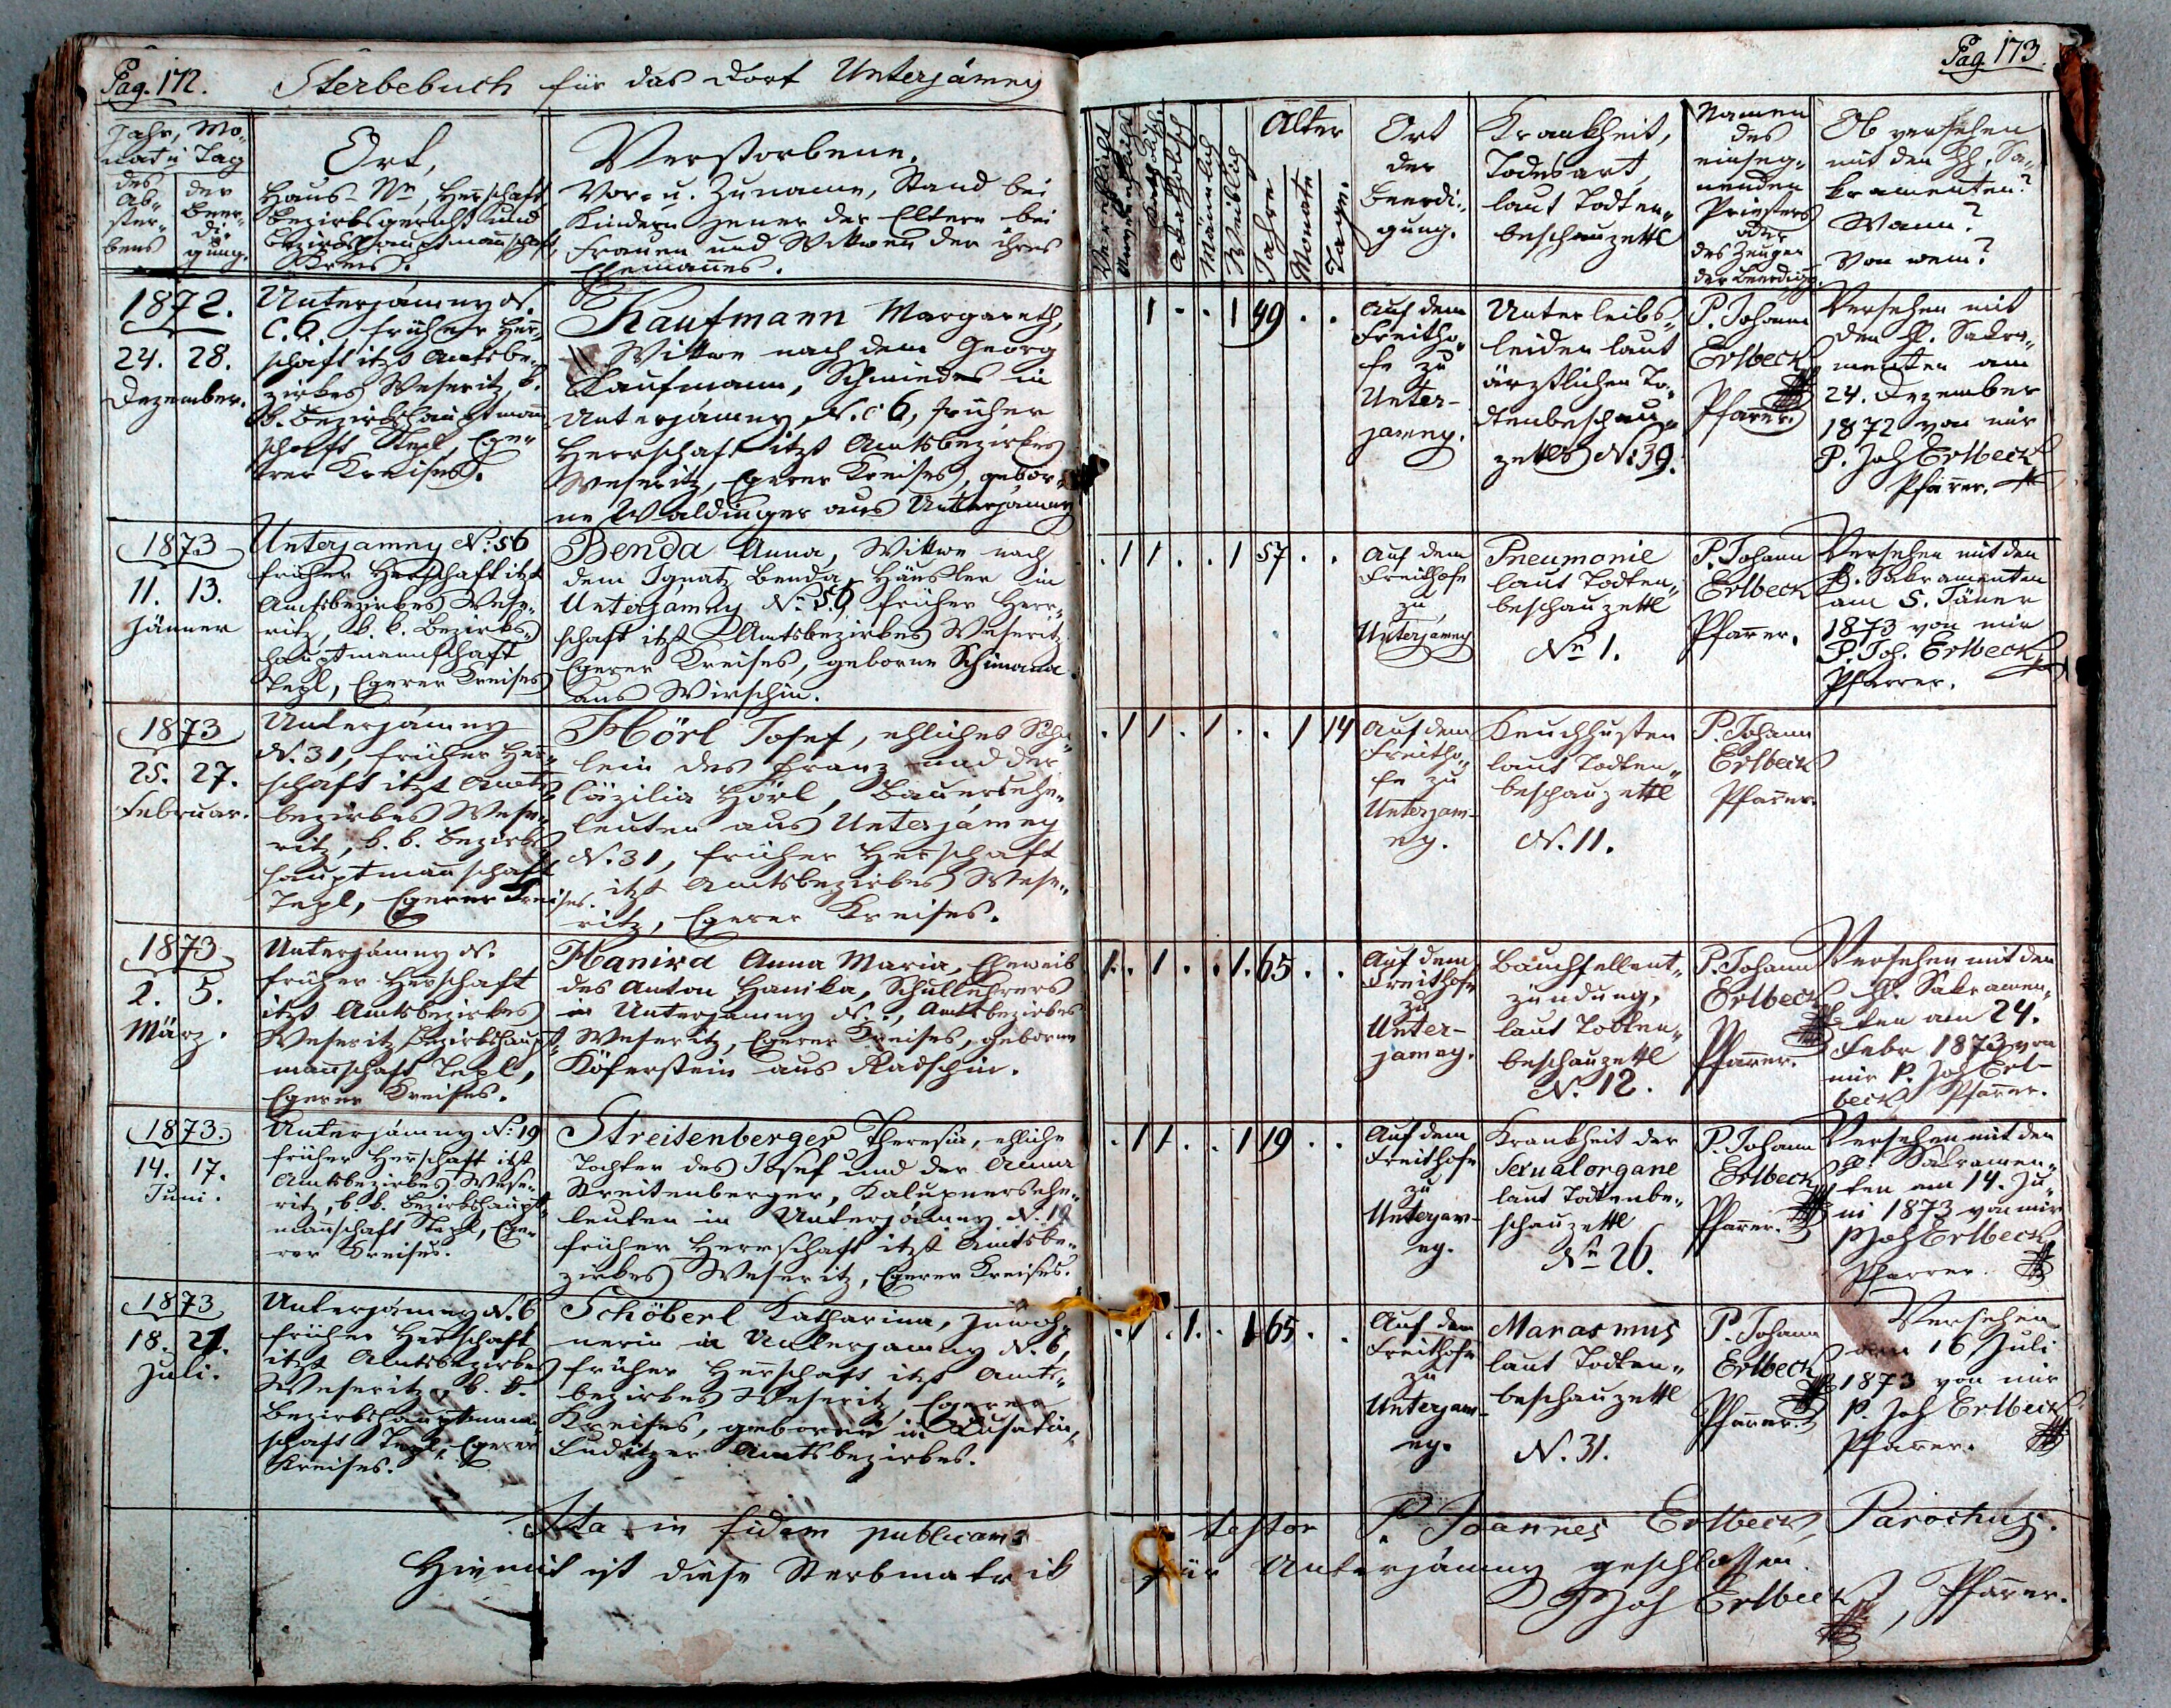 Pag. 172.
Sterbebuch für das Dorf Unterjámny
Jahr, Mo-
nat u Tag
des
Ab-
ster-
bens
der
Beer-
di-
gung.
Ort,
Haus-Nr, Herrschaft,
Bezirksgericht und
Bezirkshauptmanschaft,
Kreis.
Verstorbene.
Vor- u. Zuname, Stand bei
Kindern jener der Eltern bei
Frauen und Wittwen der ihres
Ehemannes.
1872.
24. 28.
Dezember.
Unterjámny N.
C. 6. früher Herr-
schaft itzt Amtsbe-
zirkes Weseritz, k.
k. Bezirkshauptmann
schaft Tepl, Ege-
rer Kreises.
Kaufmann Margareth,
Wittwe nach dem Georg
Kaufmann, Schmiedes in
Unterjámny N. C 6, früher
Herrschaft itzt Amtsbezirkes
Weseritz, Egerer Kreises, gebor-
ne Waldinger aus Unterjámny
1873
11. 13.
Jänner
Unterjamny N: 56
früher Herschaft itzt
Amtsbezirkes Wese-
ritz, k. k. Bezirks-
hauptmannschaft
Tepl, Egerer Kreises
Benda Anna, Wittwe nach
dem Ignatz Benda, Häusler in
Unterjámny Nr 56 früher Herr-
schaft itzt Amtsbezirkes Weseritz
Egerer Kreises, geborne Schimana
aus Wirschin.
1873
25. 27.
Februar.
Unterjámny
N. 31, früher Her-
schaft itzt Amts-
bezirkes Wese-
ritz, k. k. Bezirks
hauptmanschaft
Tepl, Egerer Kreises.
Hörl Josef, ehliches Söhn-
lein des Franz und der
Cäzilia Hörl, Bauersehe-
leuten aus Unterjámny
N. 31, früher Herschaft
itzt Amtsbezirkes Wese-
ritz, Egerer Kreises.
1873
2. 5.
März.
Unterjámny N.
früher Herschaft
itzt Amtsbezirkes
Weseritz Bezirkshaupt-
manschaft Tepl,
Egerer Kreises.
Hanika Anna Maria, Eheweib
des Anton Hanika, Schullehrers
in Unterjamny N. , Amtsbezirkes
Weseritz, Egerer Kreises, geborne
Köferstein aus Radschin.
1873.
14. 17.
Juni.
Unterjámny N: 19
früher Herschaft itzt
Amtsbezirkes Wese-
ritz, k. k. Bezirkshaupt-
manschaft Tepl, Ege-
rer Kreises.
Streitenberger Theresia, ehliche
Tochter des Josef und der Anna
Streitenberger, Kalupnersehe-
leuten in Unterjámny N. 19
früher Herrschaft itzt Amtsbe-
zirkes Weseritz, Egerer Kreises.
1873
18. 21.
Juli.
Unterjámny N. 6
früher Herschaft
itzt Amtsbezirkes
Weseritz, k. k.
Bezirkshauptmann-
schaft Tepl, Egerer
Kreises.
Schöberl Katharina, Inwoh-
nerin in Unterjamny N. 6,
früher Herschaft itzt Amts-
bezirkes Weseritz, Egerer
Kreises, geboren in
Luditzer Amtsbezirkes.
Ita in fidem publicam
Hiemit ist diese Sterbmatrik
Pag. 173.
Verehlicht
Unverehlicht
Katholisch
Akatholisch
Männlich
Weiblich
Alter
Jahre
Monate
Tage.
Ort
der
Beerdi-
gung.
Krankheit,
Todesart,
laut Todten-
beschauzettl
Namen
des
einseg-
nenden
Priesters
oder
des Zeugen
der Beerdigg.
Ob versehen
mit den hh. Sa-
kramenten?
Wann?
Von wem?
1 . . 1 49 . .
Auf dem
Freitho-
fe zu
Unter-
jamny.
Unterleibs-
leiden laut
ärztlichen To-
dtenbeschau-
zettls N: 39.
P. Johann
Erlbeck
Pfarer.
Versehen mit
den h. Sakra-
menten am
24. Dezember
1872 von mir
P. Joh Erlbeck
Pfarer.
. 1 1 . . 1 57 . .
Auf dem
Freithofe
zu
Unterjámny
Pneumonie
laut Todten-
beschauzettl
Nr 1.
P. Johann
Erlbeck
Pfarer.
Versehen mit den
h. Sakramenten
am 5. Jäner
1873 von mir
P. Joh. Erlbeck
Pfarrer.
. 1 1 . 1 . . 1 14
Auf dem
Freitho-
fe zu
Unterjam-
ny.
Keuchhusten
laut Todten-
beschauzettl
N. 11.
P. Johann
Erlbeck
Pfarer.
1. . 1 . . 1. 65 . .
Auf dem
Freithofe
zu
Unter-
jamny.
Bauchfellent-
zündung,
laut Todten-
beschauzettl
N. 12.
P. Johann
Erlbeck
Pfarer.
Versehen mit den
hl. Sakramen-
ten am 24.
Febr 1873 von
mir P. Joh Erl-
beck Pfarer.
. 1 1 . . 1 19 . .
Auf dem
Freithofe
zu
Unterjam-
ny.
Krankheit der
Sexualorgane
laut Todtenbe-
schauzettl
Nr 26.
P. Johann
Erlbeck
Pfarer.
Versehen mit den
h. Sakramen-
ten am 14. Ju-
ni 1873 von mir
P Joh Erlbeck
Pfarrer.
. 1 . 1. . 1 65 . .
Auf dem
Freithofe
zu
Unterjam-
ny.
Marasmus
laut Todten-
beschauzettl
N. 31.
P. Johann
Erlbeck
Pfarer.
Versehen
am 16 Juli
1873 von mir
P. Joh Erlbeck
Pfarer.
testor P. Joannes Erlbeck, Parochus.
für Unterjámny geschlossen
P Joh Erlbeck, Pfarer.